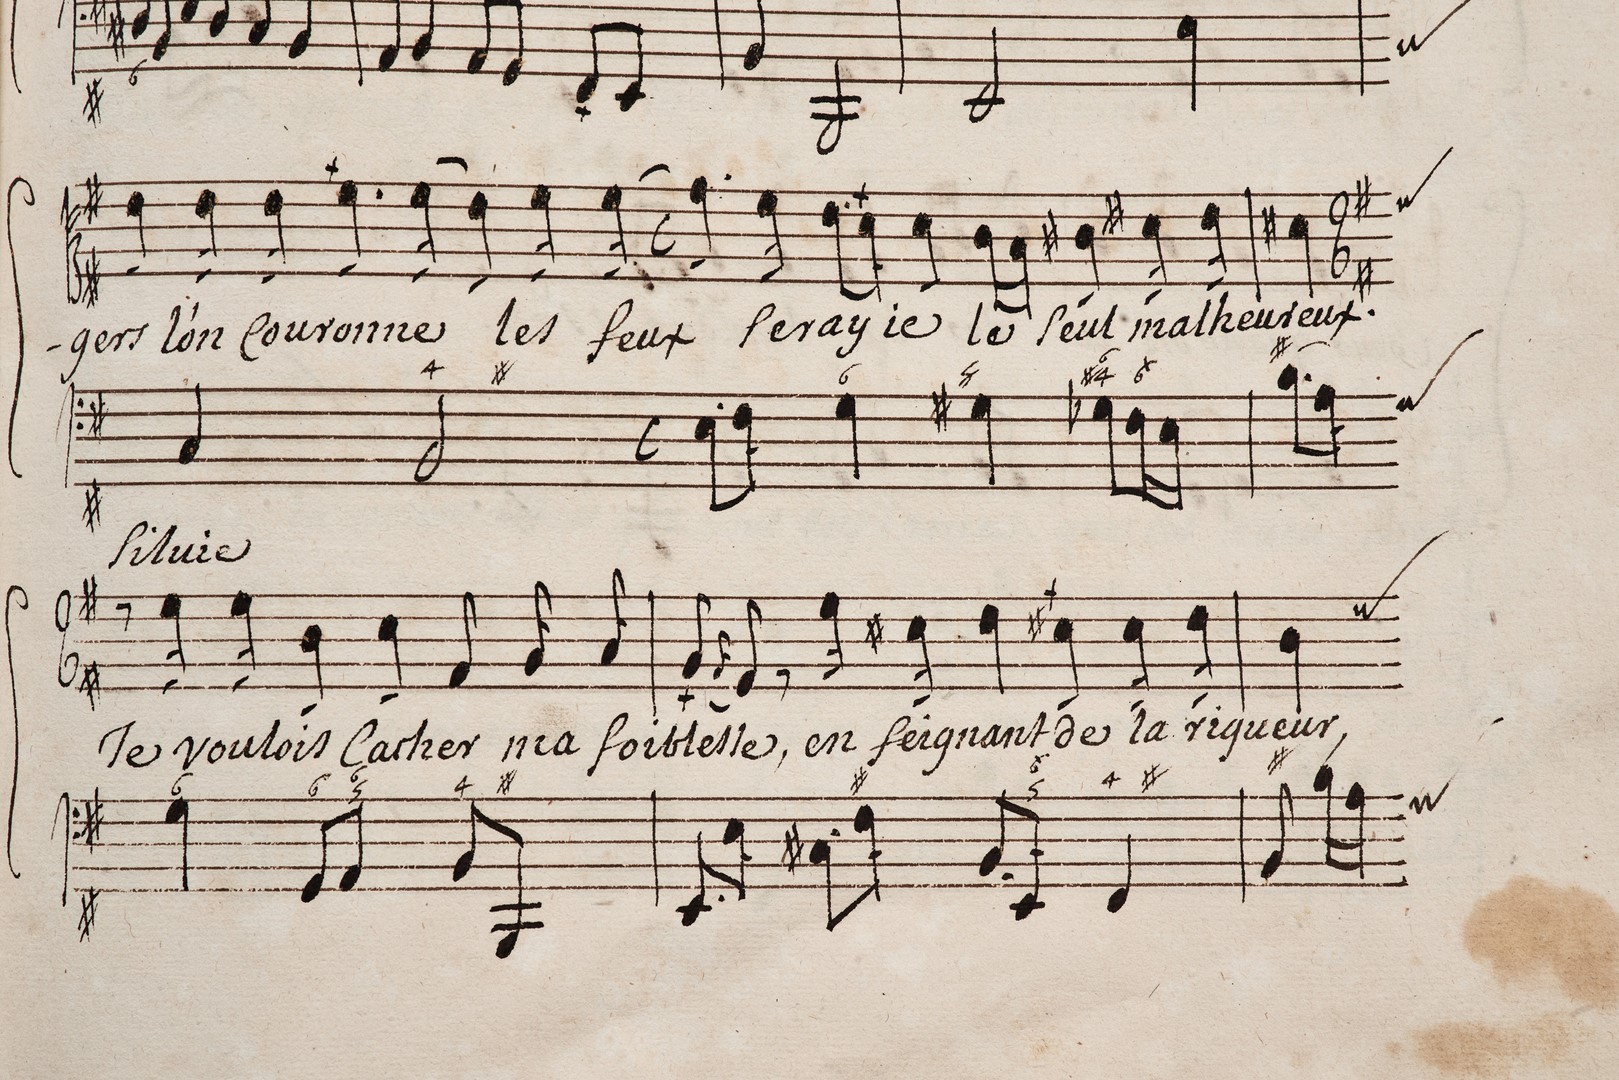 6
-gers l'on Couronne les feux Seray ie le Seul malheureux.
4 6 5 6 4 6
Siluie
Je voulois Cacher ma foiblesse, en feignant de la rigueur,
6 6 6 5 4 6 5 4